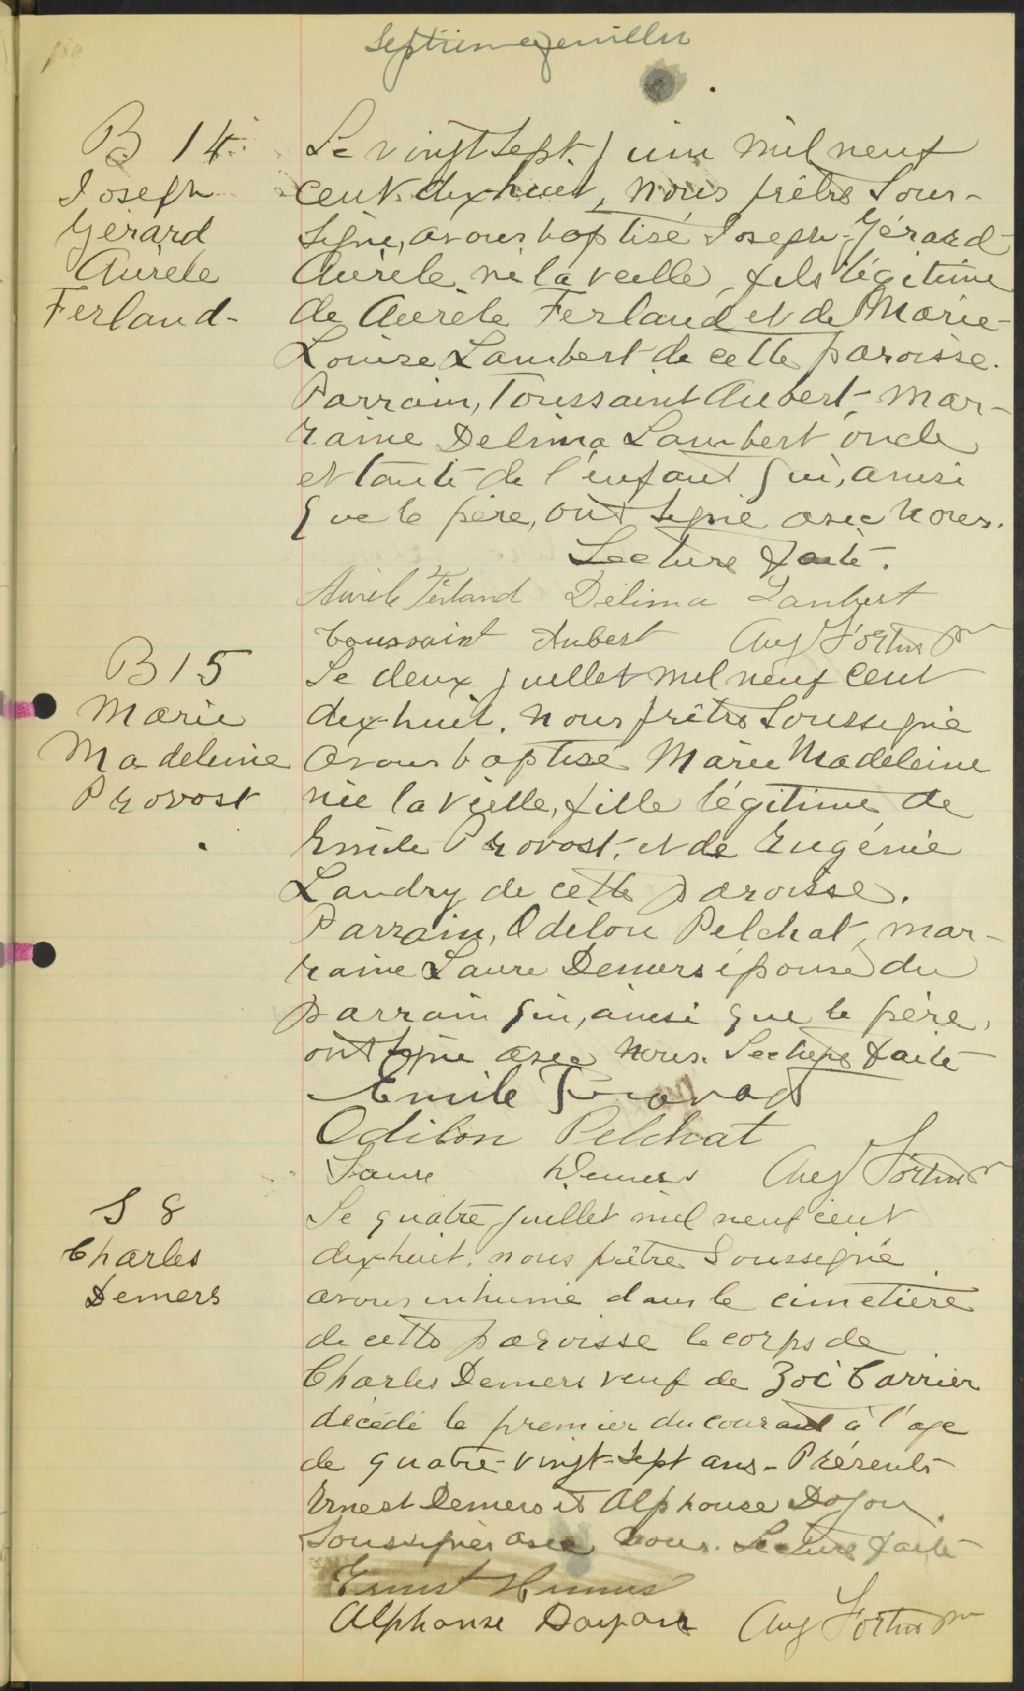 Septième feuillet
B 14
Joseph
Gérard
Aurèle
Ferland
Le vingt sept juin mil neuf
cent dix-huit, nous prêtre sous-
signé, avons baptisé Joseph-Gérard
Aurèle né la veille, fils légitime
de Aurèle Ferland et de Marie-
Louise Lambert de cette paroisse.
Parrain, Toussaint Aubert, mar-
raine Delima Lambert oncle
et tante de l'enfant qui, ainsi
que le père, ont signé avec nous.
Lecture faite.
Aurèle Ferland Délima Lambert
Toussaint Aubert Aug Fortier ptre
B 15
Marie
Madeleine
Provost
Le deux juillet mil neuf cent
dix-huit, nous prêtre soussigné
avons baptisé Marie Madeleine
née la veille, fille légitime de
Emile Provost, et de Eugénie
Landry de cette paroisse.
Parrain, Odilon Pelchat, mar-
raine Laure Demers épouse du
parrain qui, ainsi que le père,
ont signé avec nous. Lecture faite
Emile Provost
Odilon Pelchat
Laure Demers Aug Fortier
S 8
Charles
Demers
Le quatre juillet mil neuf cent
dix-huit, nous prêtre soussigné
avons inhumé dans le cimetière
de cette paroisse le corps de
Charles Demers veuf de Zoé Carrier
décédé le premier du courant à l'age
de quatre-vingt-sept ans - Présents
Ernest Demers et Alphonse Doyon
soussignés avec nous. Lecture faite
Ernest Demers
Alphonse Doyon Aug Fortier ptre